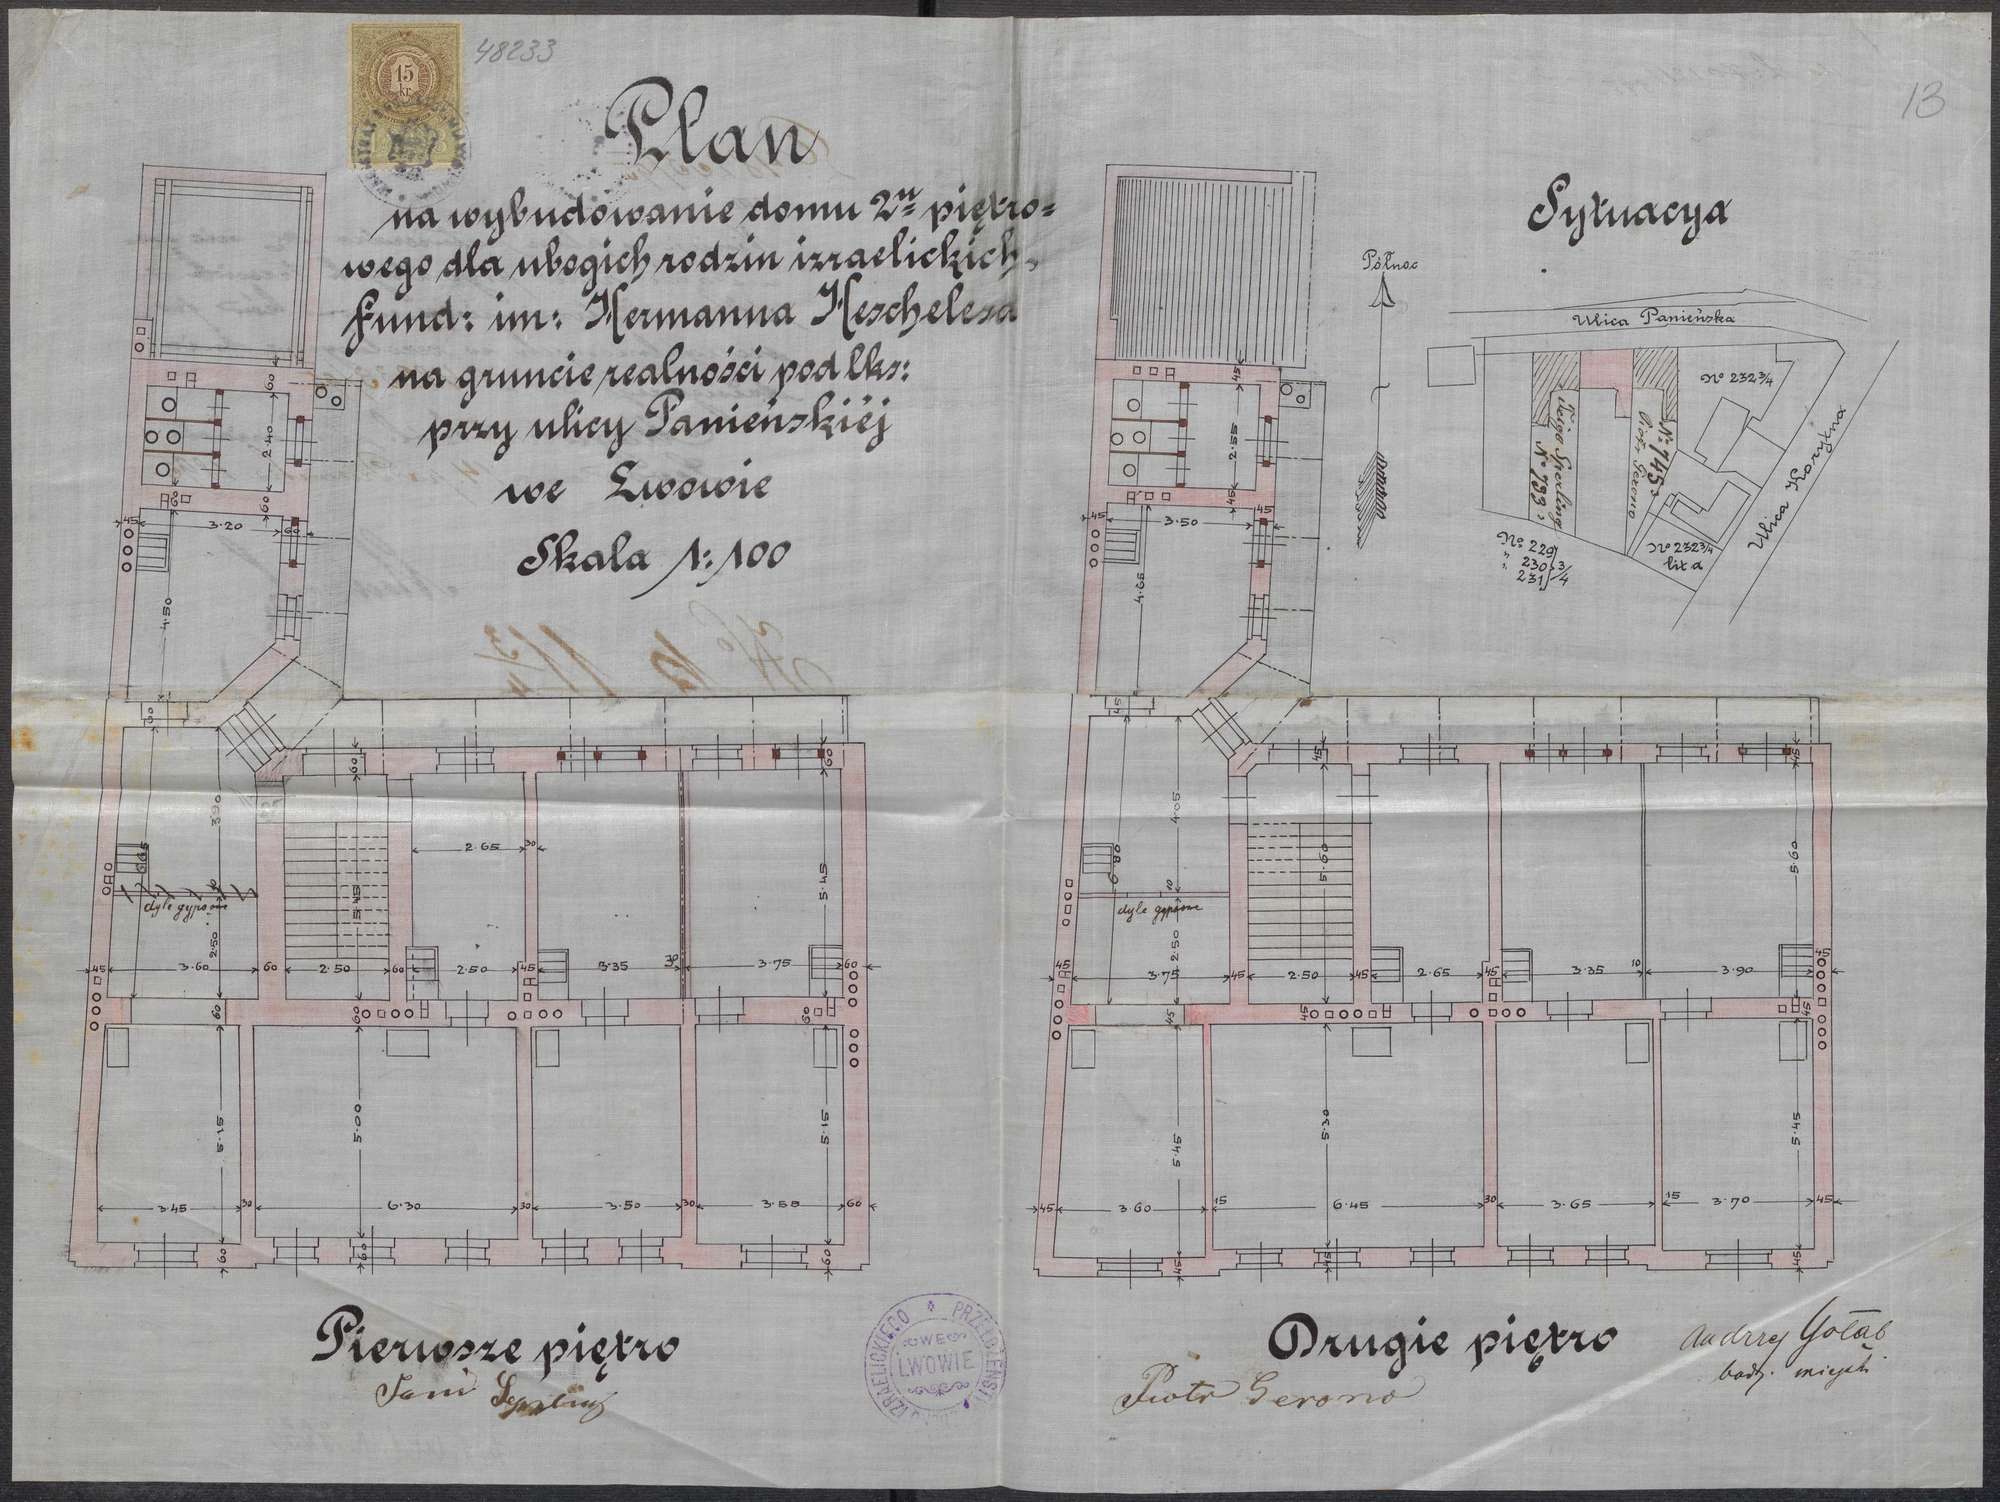 48233
13
15
kr
Plan
na wybudowanie domu 2<u>u</u> piętro=
wego dla ubogich rodzin izraelickich.
fund: im: Hermanna Heschelesa
na gruncie realności pod lks:
przy ulicy Panieńskiéj
we Lwowie
Skala 1:100
Sytuacya
Północ
Ulica Panieńska
No 232 3/4
No 745
Piotr Gerono
Sperling
No 733
Ulica Korytna
No 232 3/4
lit a
No 229
" 230 3/4
" 231
60
2.40
60
45 3.20 60
4.50
60
60
60
3.90
2.65 30
5.45
5.45
dyle gypsowe
2.50
45 3.60 60 2.50 60 2.50 45 3.35 30 3.75 60
60
60
60
5.15
5.00
5.15
3.45 30 6.30 30 3.50 30 3.58 60
60
60
60
Pierwsze piętro
45
2.55
45
45 3.50 45
4.65
45
45
45
4.05
5.60
5.60
6.80
10
dyle gypsowe
2.50
45 3.75 45 2.50 45 2.65 45 3.35 10 3.90 45
45
45
45
5.45
5.30
5.45
45 3.60 15 6.45 30 3.65 15 3.70 45
45
45
45
Drugie piętro
Piotr Gerono
Andrzej Gołąb
bud. miejski
PRZEŁOŻEŃSTWO
IZRAELICKIEGO
WE
LWOWIE